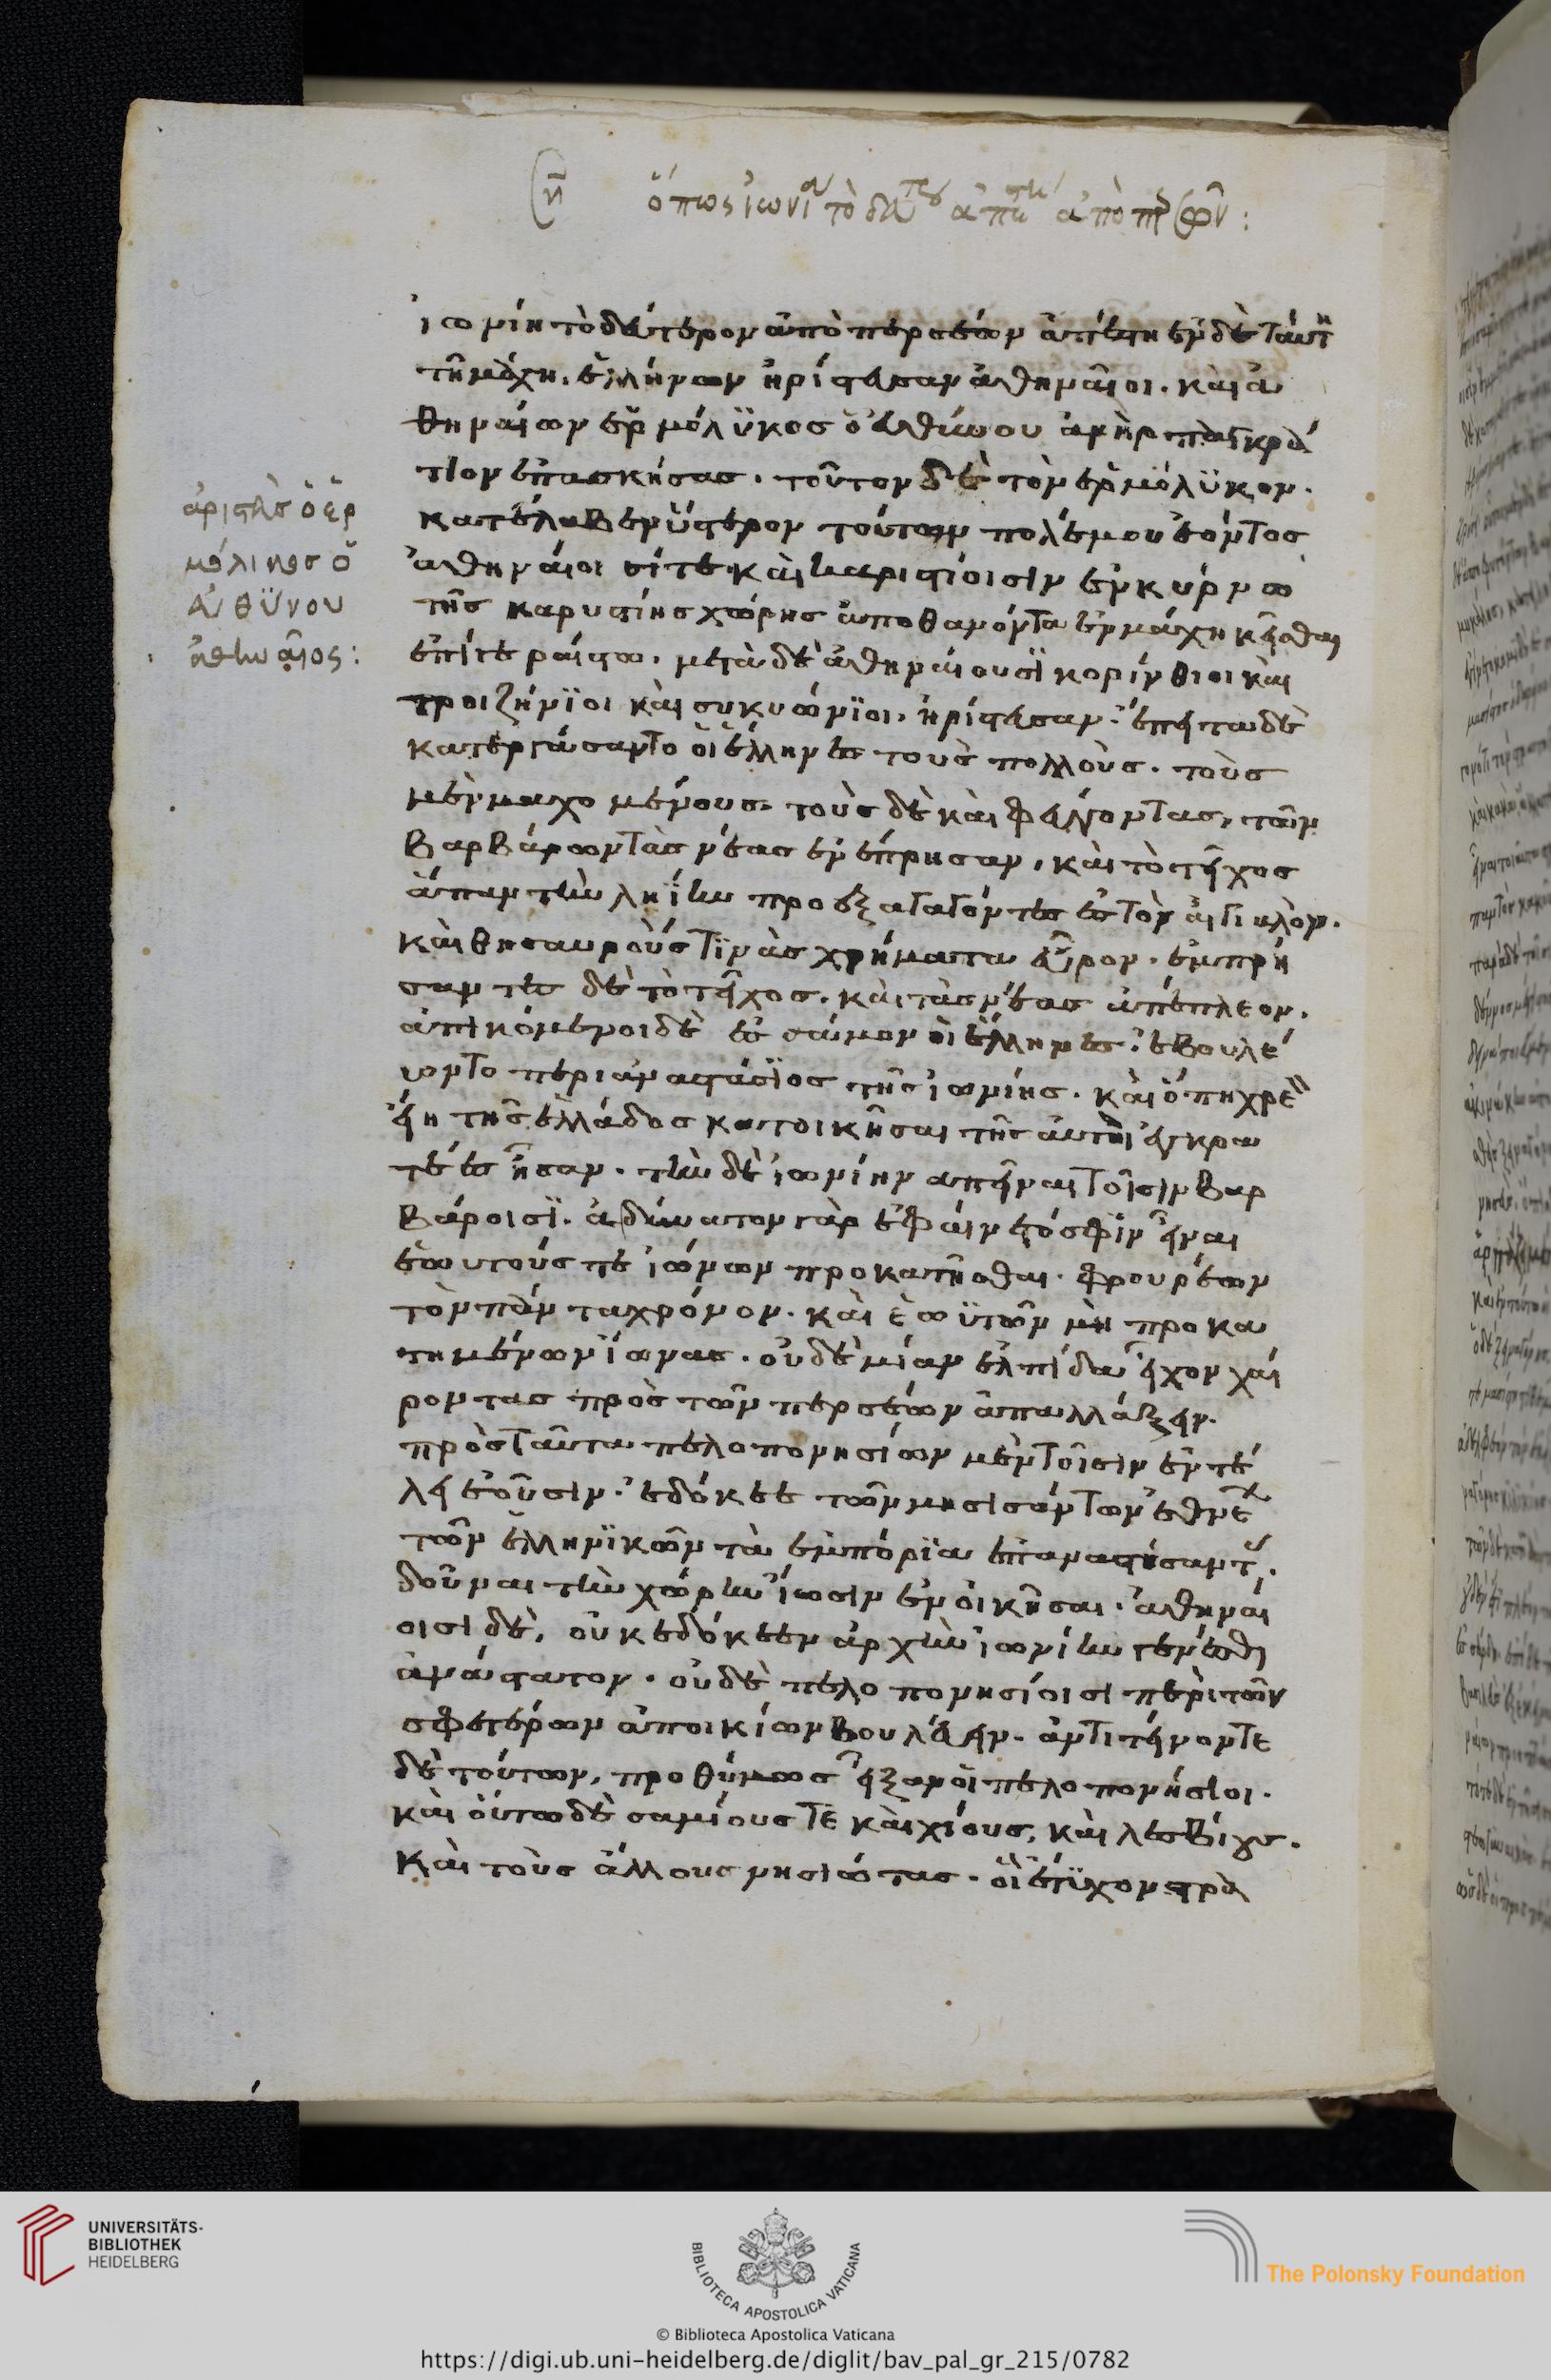 ὅπως ἰωνία τὸ δεύτερον ἀπέστη ἀπὸ περσῶν:
ἰωνίη τὸ δεύτερον ἀπὸ περσέων ἀπέστη ἐν δὲ ταύτη
τῆ μάχη. ἑλλήνων ἠρίστευσαν ἀθηναῖοι. καὶ ἀ
θηναίων ἑρμόλϋκος ὁ εὐθύνου ἀνὴρ παγκρά
τιον ἐπασκήσας. τοῦτον δὲ τὸν ἑρμόλϋκον.
ἀριστεὺς ὁ ἑρ
μόλικος ὁ
εὐθύνου
ἀθηναῖος:
κατέλαβεν ὕστερον τούτων πολέμου ἐόντος
ἀθηναίοισί τε καὶ καρυστίοισιν ἐν κύρνω
τῆς καρυστίης χώρης ἀποθανόντα ἐν μάχη κεῖσθαι
ἐπὶ γεραίστω. μετὰ δὲ ἀθηναίουσϊ κορίνθιοι καὶ
τροιζήνϊοι καὶ συκυώνϊοι. ἠρίστευσαν. ἐπεί τε δὲ
κατεργάσαντο οἱ ἕλληνες τοὺς πολλοὺς. τοὺς
μὲν μαχομένους. τοὺς δὲ καὶ φεύγοντας, τῶν
βαρβάρων τὰς νέας ἐνέπρησαν, καὶ τὸ τεῖχος
ἅπαν τὴν ληΐην προεξαγαγόντες ἐς τὸν αἰγιαλὸν.
καὶ θησαυροὺς τϊνὰς χρήματα εὗρον. ἐμπρή
σαντες δὲ τὸ τεῖχος. καὶ τὰς νέας ἀπέπλεον.
ἀπικόμενοι δὲ ἐς σάμον οἱ ἕλληνες. ἐβουλεύ
οντο περὶ ἀναστάσϊος τῆς ἰωνίης. καὶ ὅπη χρεὼν
εἴη τῆς ἑλλάδος κατοικῆσαι τῆς αὐτοὶ ἐγκρα
τέες ἦσαν. τὴν δὲ ἰωνίην ἀπεῖναι τοῖσιν βαρ
βάροισϊ. ἀδύνατον γὰρ ἐφαίνετό σφϊν εἶναι
ἑωυτούς τε ἰώνων προκατῆσθαι. φρουρέων
τὸν πάντα χρόνον. καὶ ἑωϋτῶν μὴ προκα
τημένων ἴωνας. οὐδεμίαν ἐλπίδα εἶχον χαί
ροντας πρὸς τῶν περσέων ἀπαλλάξειν.
πρὸς ταῦτα πελοποννησίων μὲν τοῖσιν ἐν τέ
λει ἐοῦσιν. ἐδόκεε τῶν μηδισάντων ἐθνέων
τῶν ἑλληνϊκῶν τὰ ἐμπόρϊα ἐπαναστήσαντας.
δοῦναι τὴν χώρην ἴωσιν ἐνοικῆσαι. ἀθηναί
οισι δὲ, οὐκ ἐδόκεεν ἀρχὴν ἰωνίην γενέσθαι
ἀνάστατον. οὐδὲ πελοποννησίοισι περὶ τῶν
σφετέρων ἀποικίων βουλεύειν. ἀντιτείνοντε
δὲ τούτων, προθύμως εἶξαν οἱ πελοπονήσιοι.
καὶ οὕτω δὲ σαμίους τε καὶ χίους, καὶ λεσβίους.
καὶ τοὺς ἄλλους νησιώτας. οἳ ἔτϋχον στρα
UNIVERSITÄTS-
BIBLIOTHEK
HEIDELBERG
BIBLIOTECA APOSTOLICA VATICANA
The Polonsky Foundation
© Biblioteca Apostolica Vaticana
https://digi.ub.uni-heidelberg.de/diglit/bav_pal_gr_215/0782